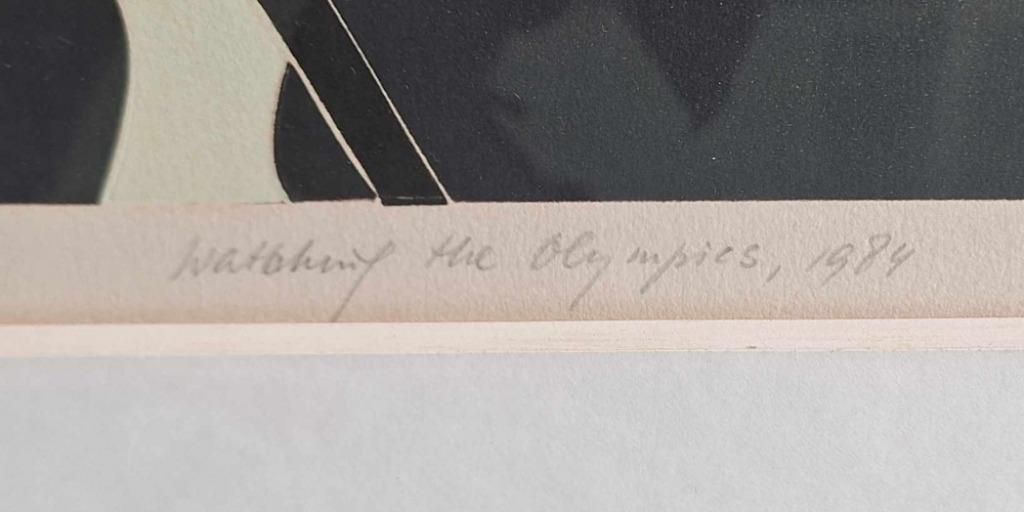 Watching the Olympics, 1984